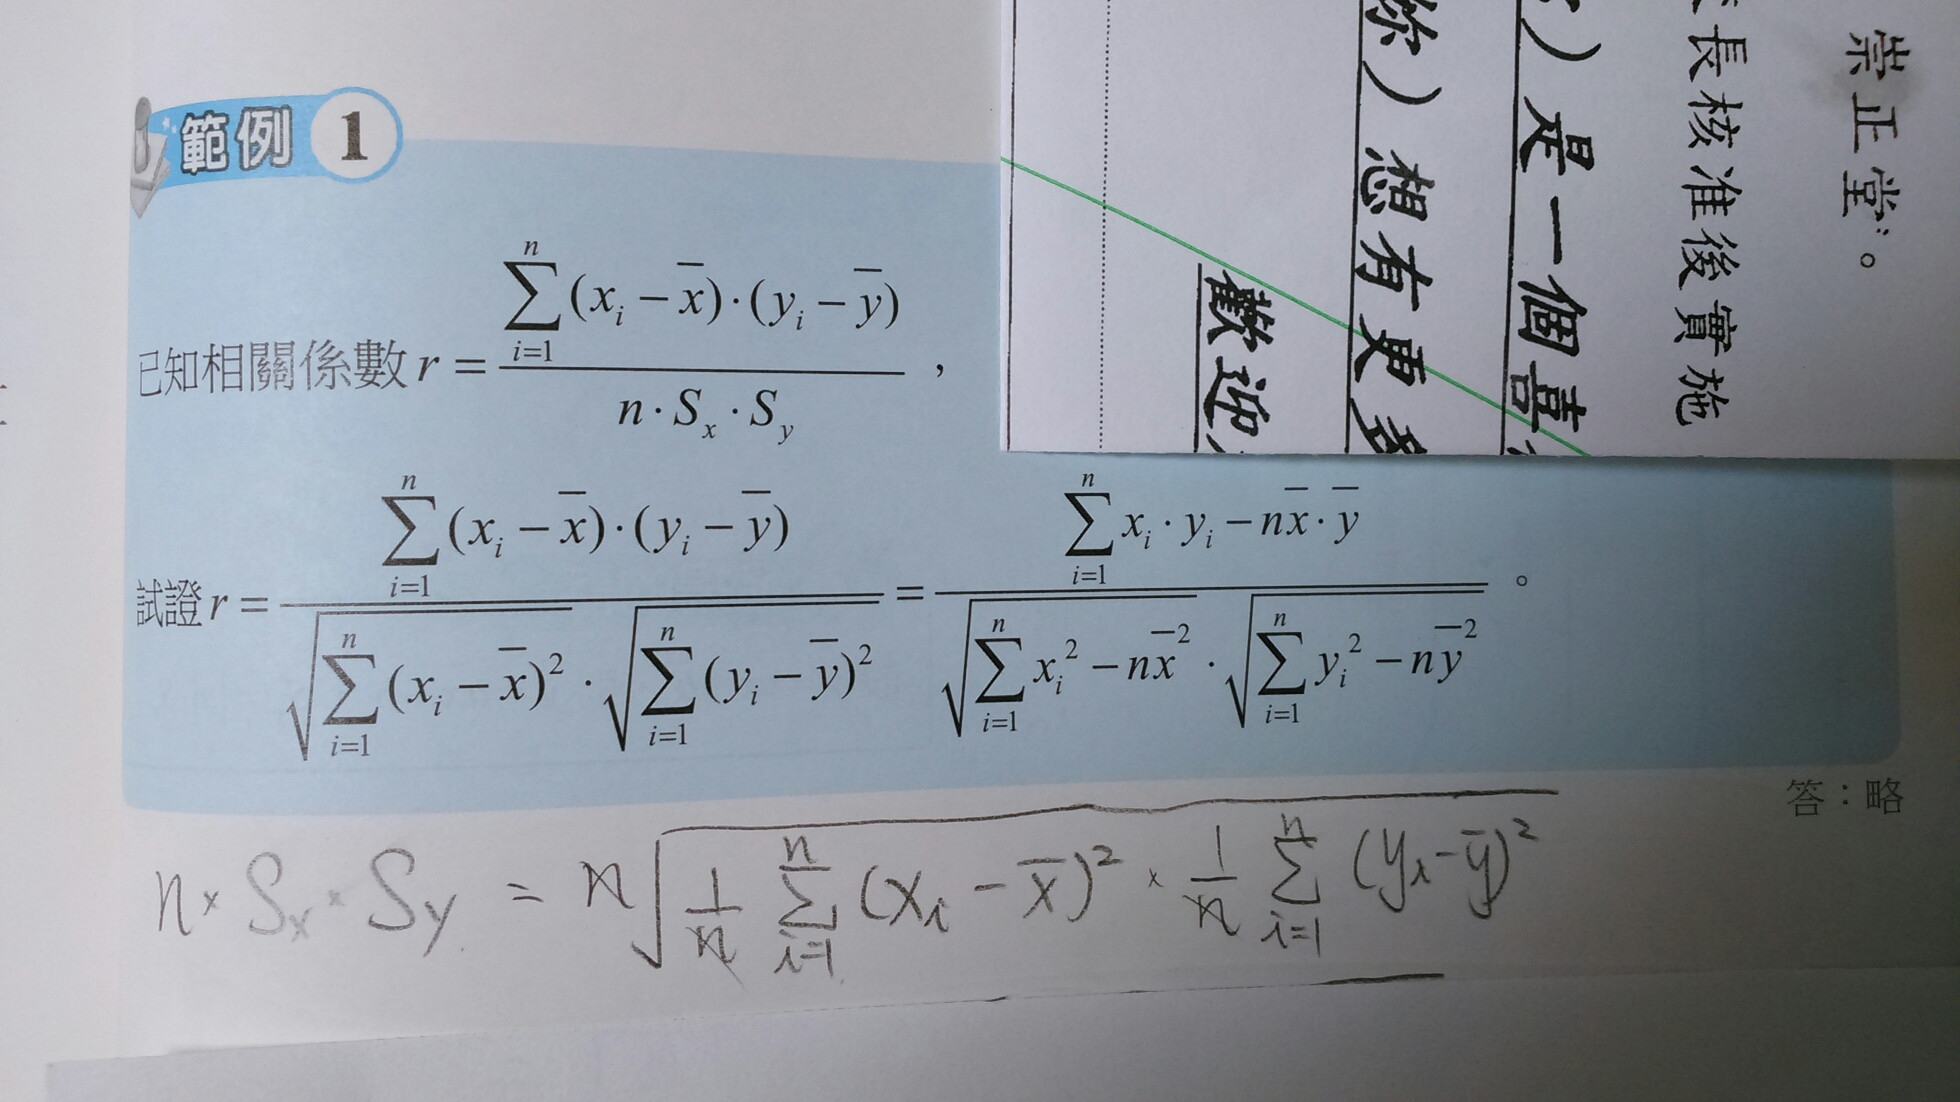 範例 1
已知相關係數 r = \frac{\sum_{i=1}^{n}(x_i - \overline{x})·(y_i - \overline{y})}{n·S_x·S_y} ，
試證 r = \frac{\sum_{i=1}^{n}(x_i - \overline{x})·(y_i - \overline{y})}{\sqrt{\sum_{i=1}^{n}(x_i - \overline{x})^2}·\sqrt{\sum_{i=1}^{n}(y_i - \overline{y})^2}} = \frac{\sum_{i=1}^{n}x_i·y_i - n\overline{x}·\overline{y}}{\sqrt{\sum_{i=1}^{n}x_i^2 - n\overline{x}^2}·\sqrt{\sum_{i=1}^{n}y_i^2 - n\overline{y}^2}} 。
答：略
n × S_x × S_y = n\sqrt{\frac{1}{n}\sum_{i=1}^{n}(x_i - \overline{x})^2 × \frac{1}{n}\sum_{i=1}^{n}(y_i - \overline{y})^2}
崇正堂。
長核准後實施
）是一個喜
你）想有更
歡迎